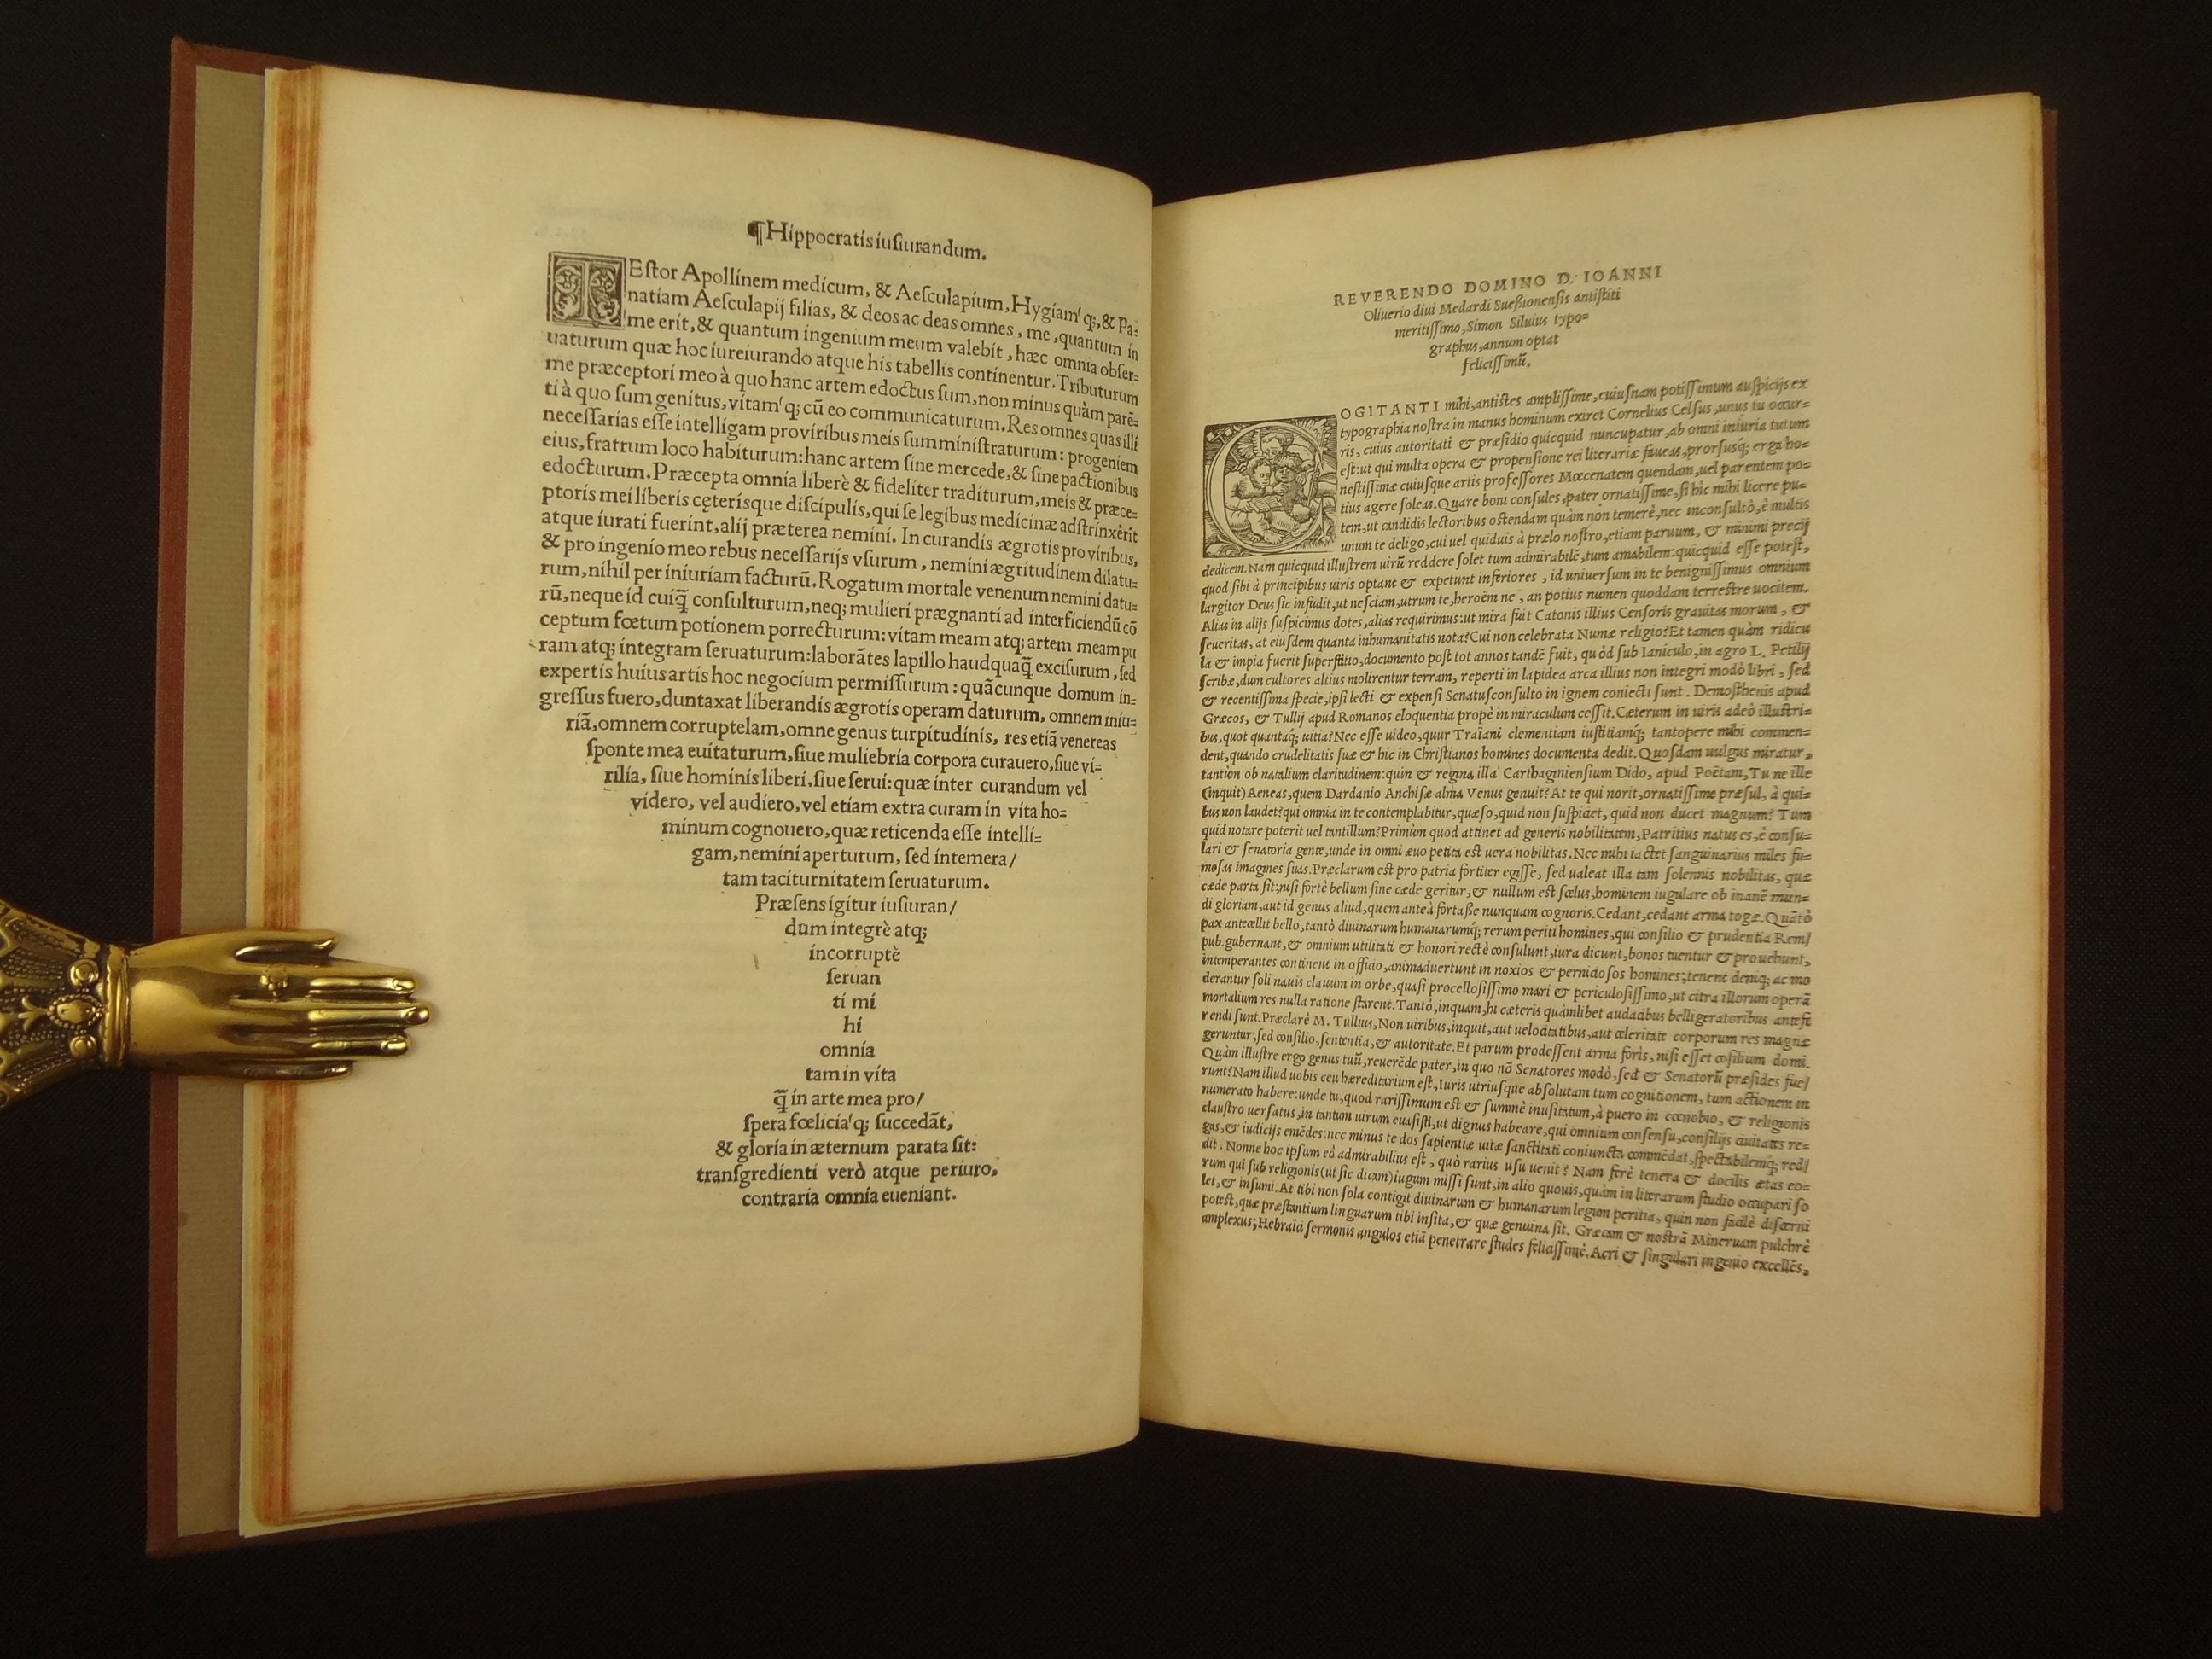 ¶Hippocratis iuſiurandum.
TEſtor Apollinem medicum, & Aeſculapium, Hygiam'q;, & Pa=
natiam Aeſculapij filias, & deos ac deas omnes, me, quantum in
me erit, & quantum ingenium meum valebit, hæc omnia obſer=
uaturum quæ hoc iureiurando atque his tabellis continentur. Tributurum
me præceptori meo à quo hanc artem edoctus ſum, non minus quàm parē=
ti à quo ſum genitus, vitam'q; cū eo communicaturum. Res omnes quas illi
neceſſarias eſſe intelligam pro viribus meis ſumminiſtraturum: progeniem
eius, fratrum loco habiturum: hanc artem ſine mercede, & ſine pactionibus
edocturum. Præcepta omnia liberè & fideliter traditurum, meis & præce=
ptoris mei liberis cęterisque diſcipulis, qui ſe legibus medicinæ adſtrinxerīt
atque iurati fuerint, alij præterea nemini. In curandis ægrotis pro viribus,
& pro ingenio meo rebus neceſſarijs vſurum, nemini ægritudinem dilatu=
rum, nihil per iniuriam facturū. Rogatum mortale venenum nemini datu=
rū, neque id cuiq̄ conſulturum, neq; mulieri prægnanti ad interficiendū cō
ceptum fœtum potionem porrecturum: vitam meam atq; artem meam pu
ram atq; integram ſeruaturum: laborātes lapillo haudquaq̄ exciſurum, ſed
expertis huius artis hoc negocium permiſſurum: quācunque domum in=
greſſus fuero, duntaxat liberandis ægrotis operam daturum, omnem iniu=
riā, omnem corruptelam, omne genus turpitudinis, res etiā venereas
ſponte mea euitaturum, ſiue muliebria corpora curauero, ſiue vi=
rilia, ſiue hominis liberi, ſiue ſerui: quæ inter curandum vel
videro, vel audiero, vel etiam extra curam in vita ho=
minum cognouero, quæ reticenda eſſe intelli=
gam, nemini aperturum, ſed intemera/
tam taciturnitatem ſeruaturum.
Præſens igitur iuſiuran/
dum integrè atq;
incorruptè
ſeruan
ti mi
hi
omnia
tam in vita
q̄ in arte mea pro/
ſpera fœlicia'q; ſuccedāt,
& gloria in æternum parata ſit:
tranſgredienti verò atque periuro,
contraria omnia eueniant.
REVERENDO DOMINO D. IOANNI
Oliuerio diui Medardi Sueßionenſis antiſtiti
meritiſſimo, Simon Siluius typo=
graphus, annum optat
feliciſſimū.
COGITANTI mihi, antiſtes ampliſſime, cuiuſnam potiſſimum auſpicijs ex
typographia noſtra in manus hominum exiret Cornelius Celſus, unus tu occur=
ris, cuius autoritati & præſidio quicquid nuncupatur, ab omni iniuria tutum
eſt: ut qui multa opera & propenſione rei literariæ faueas, prorſusq́; erga ho=
neſtiſſimæ cuiuſque artis profeſſores Mœcenatem quendam, uel parentem po=
tius agere ſoleas. Quare boni conſules, pater ornatiſſime, ſi hîc mihi licere pu=
tem, ut candidis lectoribus oſtendam quàm non temerè, nec inconſultò, è multis
unum te deligo, cui uel quiduis à prælo noſtro, etiam paruum, & minimi precij
dedicem. Nam quicquid illuſtrem uirū reddere ſolet tum admirabilē, tum amabilem: quicquid eſſe poteſt,
quod ſibi à principibus uiris optant & expetunt inferiores, id uniuerſum in te benigniſſimus omnium
largitor Deus ſic infudit, ut neſciam, utrum te, heroëm ne, an potius numen quoddam terreſtre uocitem.
Alias in alijs ſuſpicimus dotes, alias requirimus: ut mira fuit Catonis illius Cenſoris grauitas morum, &
ſeueritas, at eiuſdem quanta inhumanitatis nota? Cui non celebrata Numæ religio? Et tamen quàm ridicu
la & impia fuerit ſuperſtitio, documento poſt tot annos tandē fuit, quòd ſub Ianiculo, in agro L. Petilij
ſcribæ, dum cultores altius molirentur terram, reperti in lapidea arca illius non integri modò libri, ſed
& recentiſſima ſpecie, ipſi lecti & expenſi Senatuſconſulto in ignem coniecti ſunt. Demoſthenis apud
Græcos, & Tullij apud Romanos eloquentia propè in miraculum ceſſit. Cæterum in uiris adeò illuſtri=
bus, quot quantaq́; uitia? Nec eſſe uideo, quur Traiani clementiam iuſtitiamq́; tantopere mihi commen=
dent, quando crudelitatis ſuæ & hic in Chriſtianos homines documenta dedit. Quoſdam uulgus miratur,
tantùm ob natalium claritudinem: quin & regina illa Carthaginienſium Dido, apud Poëtam, Tu ne ille
(inquit) Aeneas, quem Dardanio Anchiſæ alma Venus genuit? At te qui norit, ornatiſſime præſul, à qui=
bus non laudet? qui omnia in te contemplabitur, quæſo, quid non ſuſpiciet, quid non ducet magnum? Tum
quid notare poterit uel tantillum? Primùm quod attinet ad generis nobilitatem, Patritius natus es, è conſu=
lari & ſenatoria gente, unde in omni æuo petita eſt uera nobilitas. Nec mihi iactet ſanguinarius miles fu=
moſas imagines ſuas. Præclarum eſt pro patria fortiter egiſſe, ſed ualeat illa tam ſolennis nobilitas, quæ
cæde parta ſit: niſi fortè bellum ſine cæde geritur, & nullum eſt ſcelus, hominem iugulare ob inanē mun=
di gloriam, aut id genus aliud, quem anteà fortaſſe nunquam cognoris. Cedant, cedant arma togæ. Quātò
pax antecellit bello, tantò diuinarum humanarumq́; rerum periti homines, qui conſilio & prudentia Rem/
pub. gubernant, & omnium utilitati & honori rectè conſulunt, iura dicunt, bonos tuentur & prouehunt,
intemperantes continent in officio, animaduertunt in noxios & pernicioſos homines; tenent deniq; ac mo
derantur ſoli nauis clauum in orbe, quaſi procelloſiſſimo mari & periculoſiſſimo, ut citra illorum operā
mortalium res nulla ratione ſtarent. Tantò, inquam, hi cæteris quāmlibet audacibus belligeratoribus antefe
rendi ſunt. Præclarè M. Tullius, Non uiribus, inquit, aut uelocitatibus, aut celeritate corporum res magnæ
geruntur; ſed conſilio, ſententia, & autoritate. Et parum prodeſſent arma foris, niſi eſſet cōſilium domi.
Quàm illuſtre ergo genus tuū, reuerēde pater, in quo nō Senatores modò, ſed & Senatorū præſides fue/
runt? Nam illud uobis ceu hæreditarium eſt, Iuris utriuſque abſolutam tum cognitionem, tum actionem in
numerato habere: unde tu, quod rariſſimum eſt & ſummè inuſitatum, à puero in cœnobio, & religionis
clauſtro uerſatus, in tantum uirum euaſiſti, ut dignus habeare, qui omnium conſenſu, conſilijs ciuitates re=
gas, & iudicijs emēdes: nec minus te dos ſapientiæ uitæ ſanctitati coniuncta commēdat, ſpectabilemq́; red/
dit. Nonne hoc ipſum eò admirabilius eſt, quò rarius uſu uenit? Nam ferè tenera & docilis ætas eo=
rum qui ſub religionis (ut ſic dicam) iugum miſſi ſunt, in alio quouis, quàm in literarum ſtudio occupari ſo
let, & inſumi. At tibi non ſola contigit diuinarum & humanarum legum peritia, quin non facilè diſcerni
poteſt, quæ præſtantium linguarum tibi inſita, & quæ genuina ſit. Græcam & noſtrā Mineruam pulchrè
amplexus; Hebraici ſermonis angulos etiā penetrare ſtudes feliciſſimè. Acri & ſingulari ingenio excellēs,